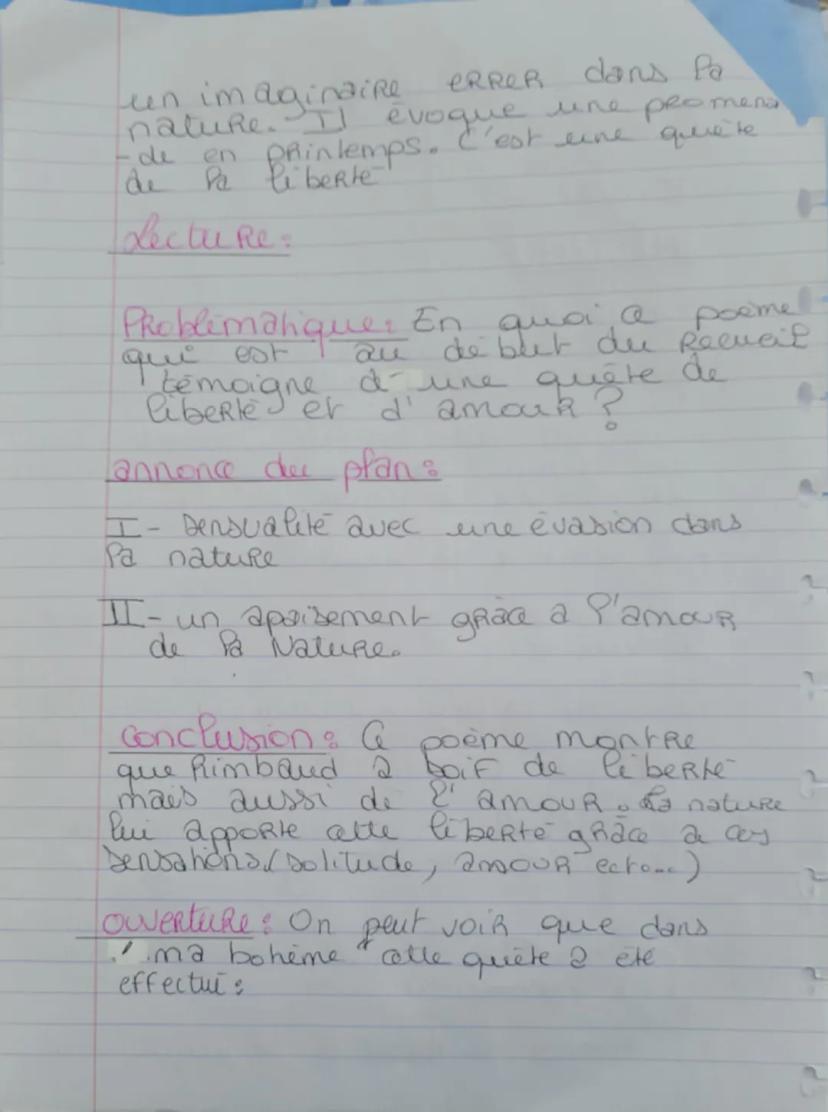 un imaginaire errer dans la
nature. Il évoque une promena
-de en printemps. C'est une quête
de la liberté
Lecture:
Problématique: En quoi ce poème
qui est au début du Recueil
témoigne d'une quête de
liberté et d'amour?
annonce du plan:
I- Sensualité avec une évasion dans
la nature
II- un apaisement grâce a l'amour
de la Nature.
Conclusion: Ce poème montre
que Rimbaud a soif de liberté
mais aussi de l'amour. La nature
lui apporte cette liberté grâce a ces
sensations (solitude, amour ect...)
Ouverture: On peut voir que dans
"ma bohème" cette quête a été
effectué: